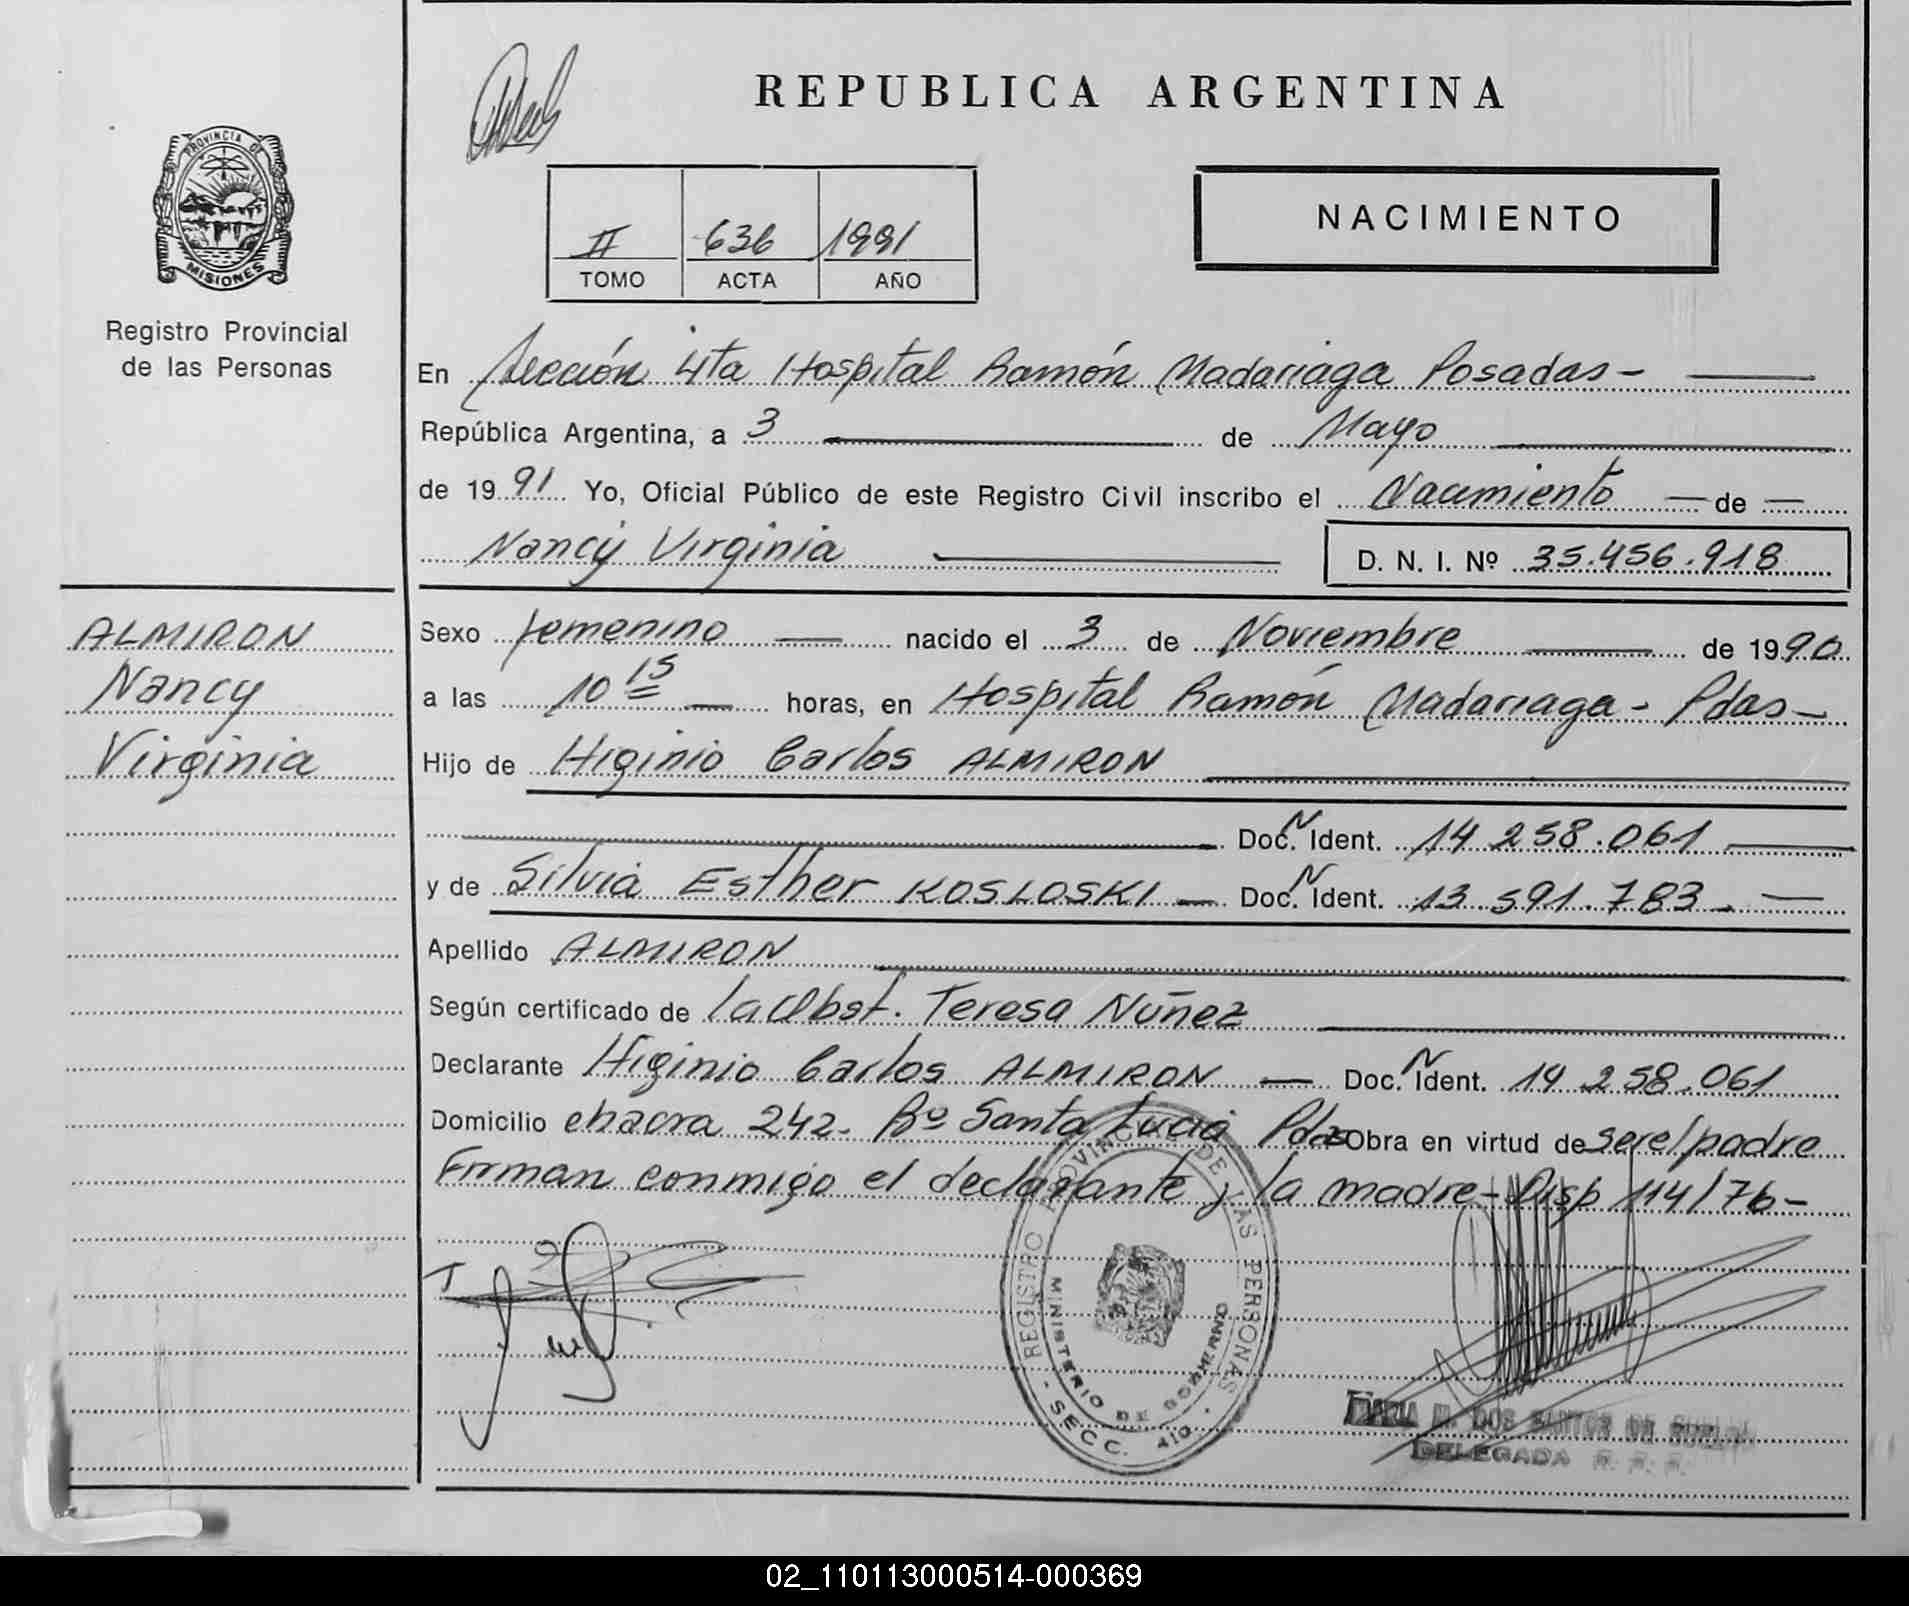 REPUBLICA ARGENTINA
PROVINCIA DE
MISIONES
Registro Provincial
de las Personas
II 636 1991
TOMO ACTA AÑO
NACIMIENTO
En Sección 4ta Hospital Ramón Madariaga Posadas-
República Argentina, a 3 de Mayo
de 1991 Yo, Oficial Público de este Registro Civil inscribo el Nacimiento de
Nancy Virginia D. N. I. Nº 35.456.918
ALMIRON
Nancy
Virginia
Sexo femenino nacido el 3 de Noviembre de 1990
a las 10 15 horas, en Hospital Ramón Madariaga - Pdas-
Hijo de Higinio Carlos ALMIRON
Doc. N Ident. 14 258.061
y de Silvia Esther KOSLOSKI Doc. N Ident. 13 591.783.
Apellido ALMIRON
Según certificado de la Obst. Teresa Nuñez
Declarante Higinio Carlos ALMIRON Doc. N Ident. 14 258.061
Domicilio chacra 242. Bº Santa Lucia Pdas Obra en virtud de ser el padre
Firman conmigo el declarante y la madre- Disp 114/76-
REGISTRO PROVINCIAL DE LAS PERSONAS
MINISTERIO DE GOBIERNO
- SECC. 4ta. -
M. DOS SANTOS DE
DELEGADA R. P. P.
02_110113000514-000369